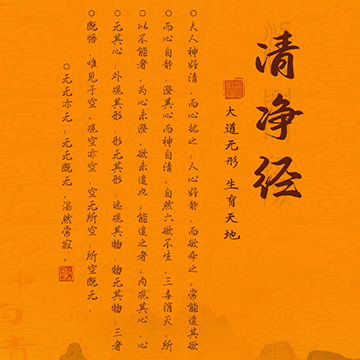 清净经
大道无形 生育天地
○夫人神好清,而心扰之;人心好静,而欲牵之。常能遣其欲
○而心自静,澄其心而神自清。自然六欲不生,三毒消灭,所
○以不能者,为心未澄,欲未遣也;能遣之者;内观其心,心
○无其心,外观其形,形无其形,远观其物,物无其物;三者
○既悟,唯见于空。观空亦空,空无所空;所空既无,
○无无亦无;无无既无,湛然常寂。